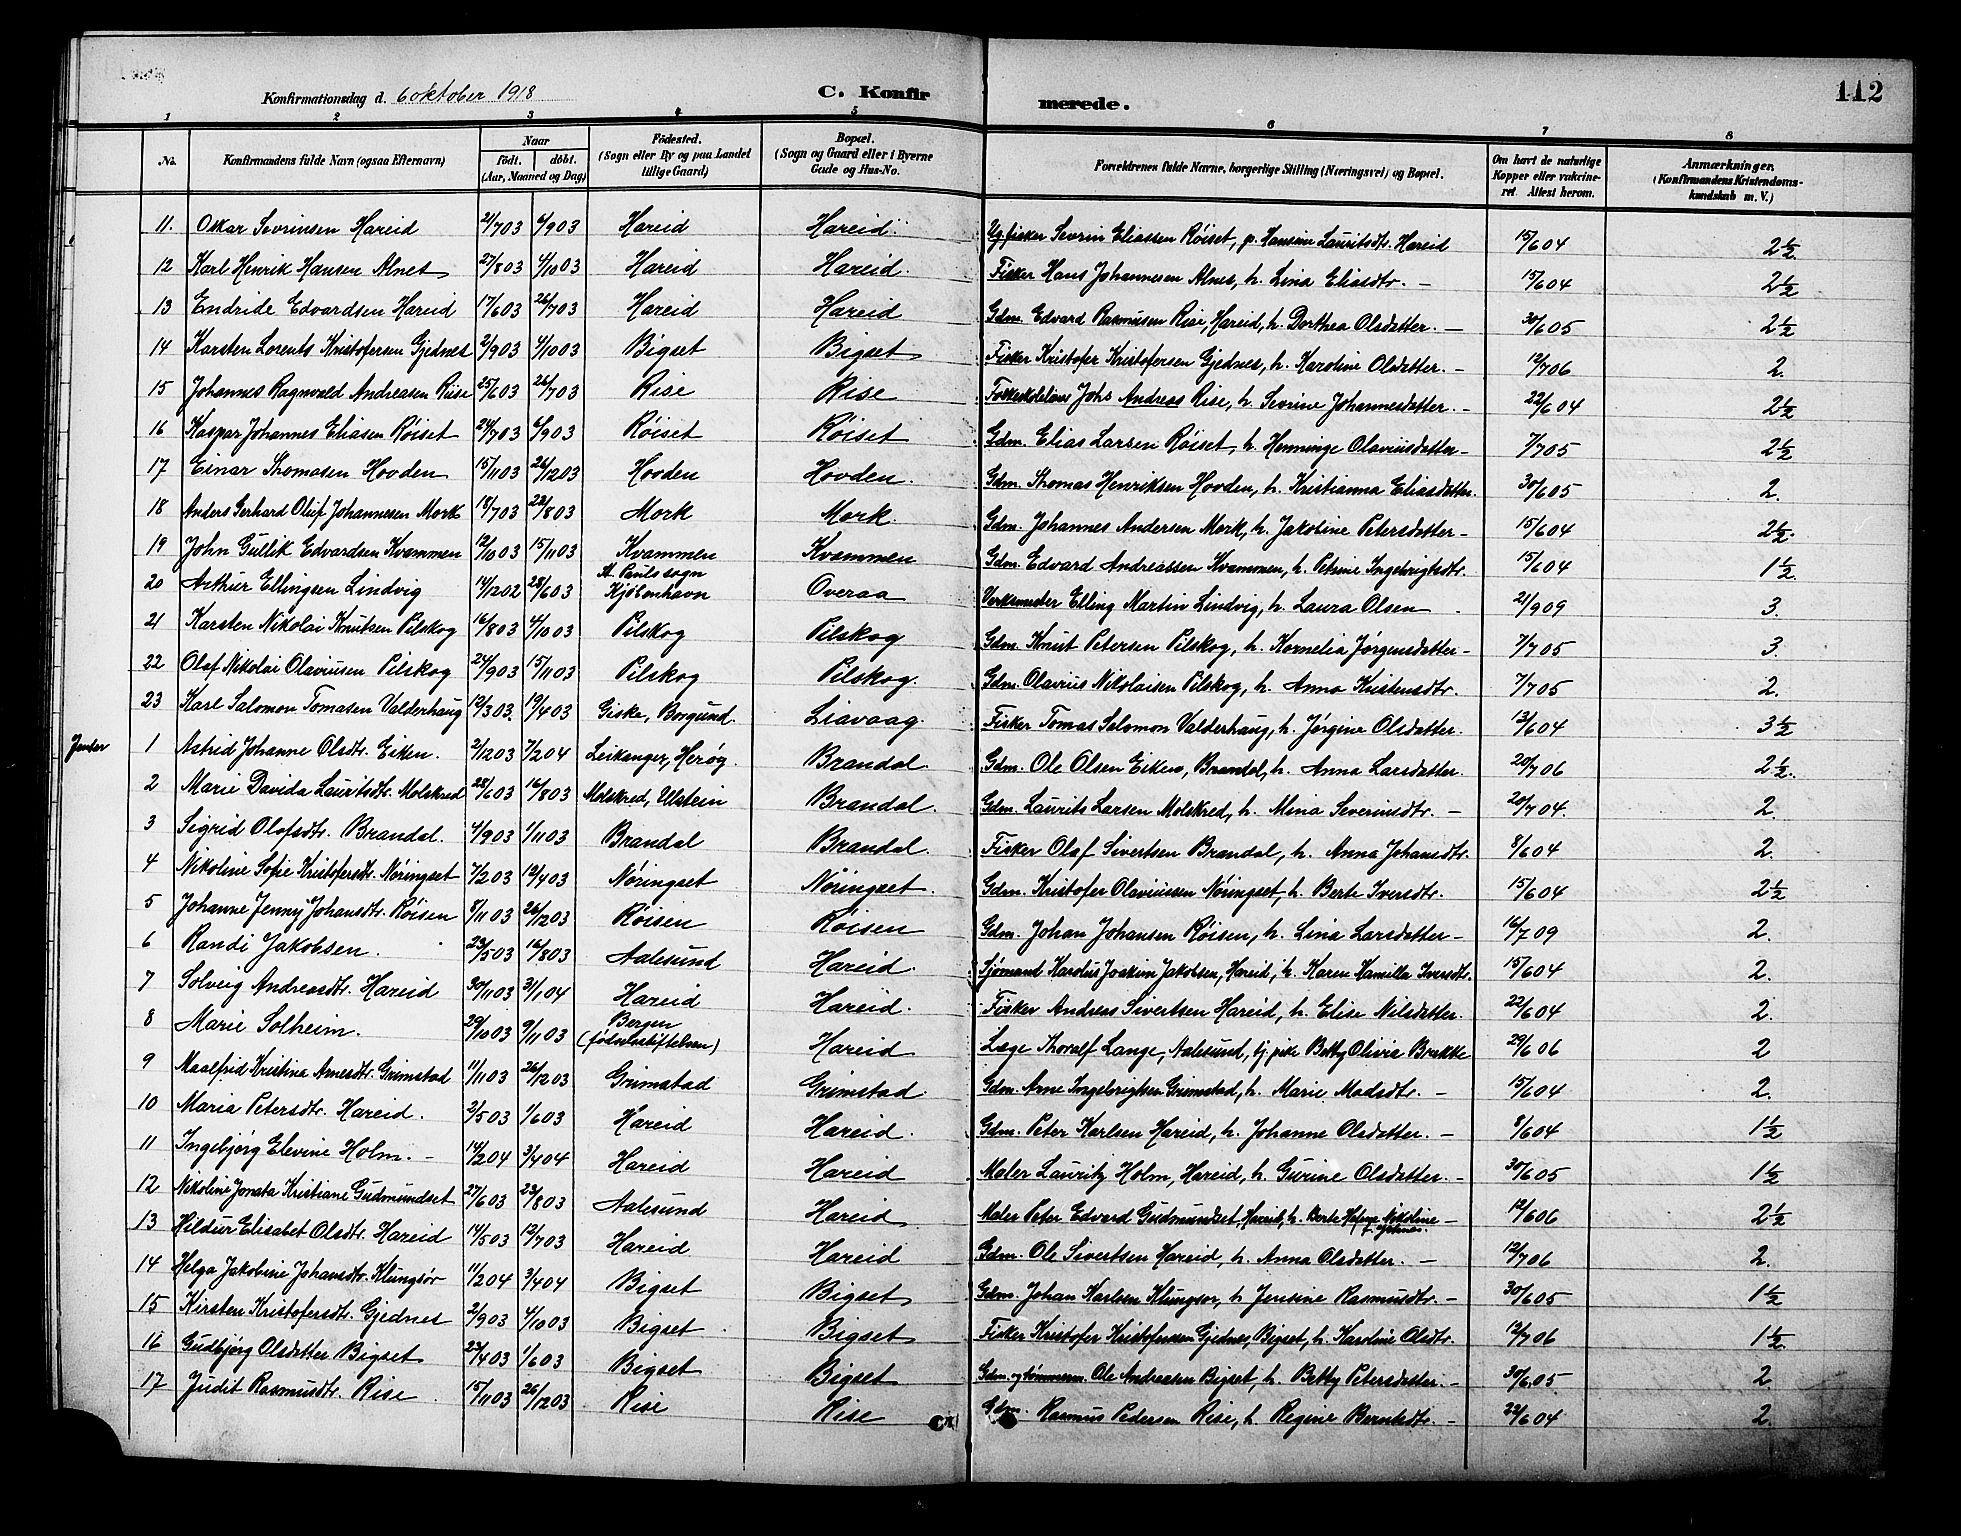 Konfirmationsdag d. 6 oktober 1918 C. Konfirmerede. 112
1 2 3 4 5 6 7 8
No. Konfirmandens fulde Navn (ogsaa Efternavn) Naar födt. döbt. (Aar, Maaned og Dag) Födested. (Sogn eller By og paa Landet tillige Gaard) Bopæl. (Sogn og Gaard eller i Byerne Gade og Hus-No. Forældrenes fulde Navne, borgerlige Stilling (Næringsvei) og Bopæl. Om havt de naturlige Kopper eller vaccineret. Attest herom. Anmærkninger. (Konfirmandens Kristendomskundskab m. V.)
11. Oskar Sevrinsen Hareid 21/703 6/903 Hareid Hareid Ug. fisker Sevrin Eliassen Röiset, p. Hansine Lauritsdtr. Hareid 15/604 2 1/2
12 Karl Henrik Hansen Alnes 27/803 4/1003 Hareid Hareid. Fisker Hans Johannesen Alnes, h. Lina Eliasdtr. - 15/604 2 1/2
13 Endride Edvardsen Hareid 17/603 26/703 Hareid Hareid Gdm. Edvard Rasmusen Rise, Hareid, h. Dorthea Olsdatter. - 30/605 2 1/2
14 Karsten Lorents Kristofersen Gjednes 2/903 4/1003 Bigset Bigset Fisker Kristofer Kristofersen Gjednes, h. Karoline Olsdatter. - 12/706 2.
15 Johannes Ragnvald Andreasen Riise 25/603 26/703 Rise Rise Johs Andreas Rise, h. Sevrine Johannesdatter. - 22/604 2 1/2
16 Kaspar Johannes Eliasen Röiset 24/703 6/903 Röiset Röiset Gdm. Elias Larsen Röiset, h. Henninge Olaviusdatter - 7/705 2 1/2
17 Einar Thomasen Hovden 15/1103 26/1203 Hovden Hovden. Gdm. Thomas Henriksen Hovden, h. Kristianna Eliasdatter. 30/605 2.
18 Anders Gerhard Oluf Johannesen Mork 18/703 23/803 Mork Mork. Gdm. Johannes Andersen Mork, h. Jakobine Petersdatter - 15/604 2 1/2.
19 John Gullik Edvardsen Kvammen 12/1003 15/1103 Kvammen Kvammen Gdm. Edvard Andreassen Kvammen, h. Petrine Ingebrigtsdtr. 15/604 1 1/2
20 Arthur Ellingsen Lindvig 14/1202 28/603 St. Pauls sogn Kjøbenhavn Overaa Verksmester Elling Martin Lindvig, h. Laura Olsen - 21/909 3.
21 Karsten Nikolai Knutsen Pilskog 16/803 4/1003 Pilskog Pilskog Gdm. Knut Petersen Pilskog, h. Kornelia Jørgensdatter - 7/705 3.
22 Olaf Nikolai Olaviusen Pilskog 24/903 15/1103 Pilskog Pilskog. Gdm. Olavius Nikolaisen Pilskog, h. Anna Kristensdtr. 7/705 2.
23 Karl Salomon Tomasen Valderhaug 12/303. 19/403 Giske, Borgund. Liavaag. Fisker Tomas Salomon Valderhaug, h. Jørgine Olsdatter. 13/604 3 1/2
Jenter 1 Astrid Johanne Olsdtr. Eiken. 2/1203 7/204 Leikanger, Herøy. Brandal. Gdm. Ole Olsen Eiken, Brandal, h. Anna Larsdatter. 20/706 2 1/2.
2 Marie Davida Lauritsdtr. Molskred 28/603 16/803 Molskred, Ulstein Brandal. Gdm. Laurits Larsen Molskred, h. Mina Severinsdtr. - 20/704. 2.
3 Sigrid Olafsdtr. Brandal. 4/903 1/1103 Brandal Brandal. Fisker Olaf Sivertsen Brandal, h. Anna Johansdtr. 8/604 2.
4 Nikoline Sofie Kristofersdtr. Nöringset 7/203 12/403 Nöringset Nöringset. Gdm. Kristofer Olaviussen Nöringset, h. Berte Iversdtr. 15/604 2 1/2
5 Johanne Jenny Johansdtr. Röisen 8/1103 26/1203 Röisen Röisen Gdm. Johan Johansen Röisen, h. Lina Larsdatter - 16/709 2.
6 Randi Jakobsen. 23/503 16/803 Aalesund Hareid. Sjömand Karolus Joakim Jakobsen, Hareid, h. Karen Kamilla Iversdtr. 15/604 2.
7 Solveig Andreasdtr. Hareid 30/1103 31/104 Hareid Hareid. Fisker Andreas Sivertsen Hareid, h. Elise Nilsdatter. 22/604 2.
8 Marie Solheim. 29/1003 9/1103 Bergen (fødselsstiftelsen) Hareid Læge Thoralf Lange, Aalesund, tj. pike Betty Olivia Brakke 29/606 2
9 Maalfrid Kristina Arnesdtr. Grimstad 11/1103 26/1203 Grimstad Grimstad Gdm. Arne Ingebrigtsen Grimstad, h. Marie Madsdtr. - 15/604 2.
10 Maria Petersdtr. Hareid. 2/503 1/603 Hareid Hareid. Gdm. Peter Karlsen Hareid, h. Johanne Olsdatter. - 8/604 1 1/2
11 Ingebjörg Elevine Holm. - 14/204 3/404 Hareid Hareid Maler Lauritz Holm, Hareid, h. Gurine Olsdatter. - 30/605 1 1/2
12 Nikoline Jonata Kristiane Gudmundset 27/603 23/803 Aalesund Hareid Maler Peter Edvard Gudmundset, Hareid, h. Berte Nikoline - 12/606 2 1/2
13 Hildur Elisabet Olsdtr. Hareid 14/503 12/703 Hareid Hareid Gdm. Ole Sivertsen Hareid, h. Anna Olsdatter. - 12/706 2.
14 Helga Jakobine Johansdtr. Klungsör 11/204 3/404 Bigset Bigset Gdm. Johan Karlsen Klungsör, h. Jensine Rasmusdtr. - 30/605 1 1/2
15 Kirsten Kristofersdtr. Gjednes 2/903 4/1003 Bigset Bigset Fisker Kristofer Kristofersen Gjednes, Bigset, h. Karoline Olsdtr. 12/706 1 1/2.
16 Gudbjörg Olsdatter Bigset 27/403 1/603 Bigset Bigset Gdm. og tømmerm. Ole Andreasen Bigset, h. Betty Petersdatter. - 30/605 2
17 Judit Rasmusdtr. Rise. 15/1103 26/1203 Rise Rise Gdm. Rasmus Pedersen Rise, h. Regine Berntsdtr. - 22/604 2.